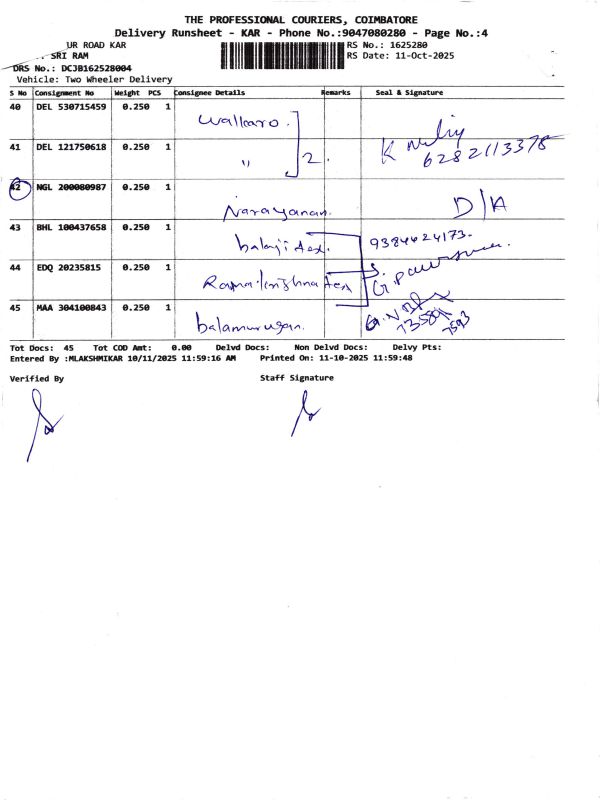 THE PROFESSIONAL COURIERS, COIMBATORE
Delivery Runsheet - KAR - Phone No.:9047080280 - Page No.:4
UR ROAD KAR RS No.: 1625280
. SRI RAM RS Date: 11-Oct-2025
DRS No.: DCJB162528004
Vehicle: Two Wheeler Delivery
S No Consignment No Weight PCS Consignee Details Remarks Seal & Signature
40 DEL 530715459 0.250 1 Walkaro
41 DEL 121750618 0.250 1 " 2. 6282113378
42 NGL 200080987 0.250 1 Narayanan. D/A
43 BHL 100437658 0.250 1 balaji tex 9384624173.
44 EDQ 20235815 0.250 1 Ramakrishna tex
45 MAA 304100843 0.250 1 balamurugan.
Tot Docs: 45 Tot COD Amt: 0.00 Delvd Docs: Non Delvd Docs: Delvy Pts:
Entered By :MLAKSHMIKAR 10/11/2025 11:59:16 AM Printed On: 11-10-2025 11:59:48
Verified By Staff Signature